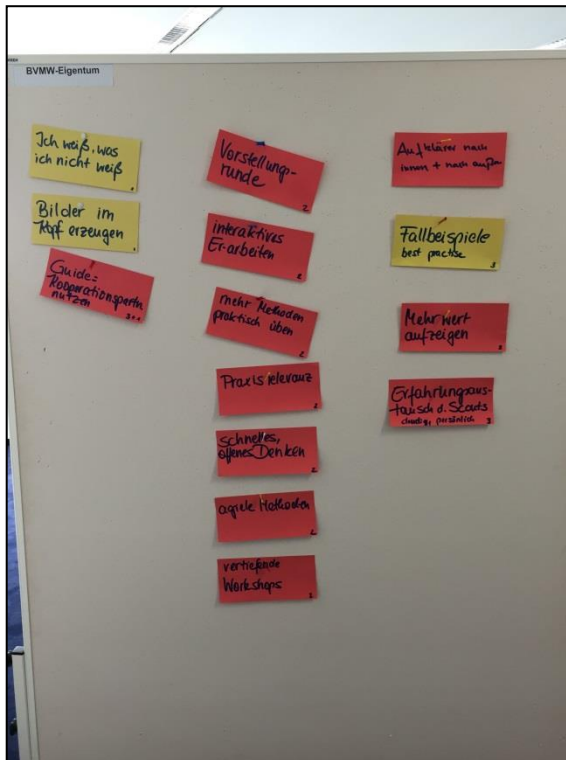 BVMW-Eigentum
Ich weiß, was
ich nicht weiß
Bilder im
Kopf erzeugen
Guide=
Kooperationspartn
nutzen
Vorstellungs-
runde
2
interaktives
Er-arbeiten
2
mehr Methoden
praktisch üben
2
Praxisrelevanz
2
schnelles,
offenes Denken
2
agiele Methoden
2
vertiefende
Workshops
Aufklärer nach
innen + nach außen
Fallbeispiele
best practise
3
Mehrwert
aufzeigen
3
Erfahrungsaus-
tausch d. Scouts
persönlich
3